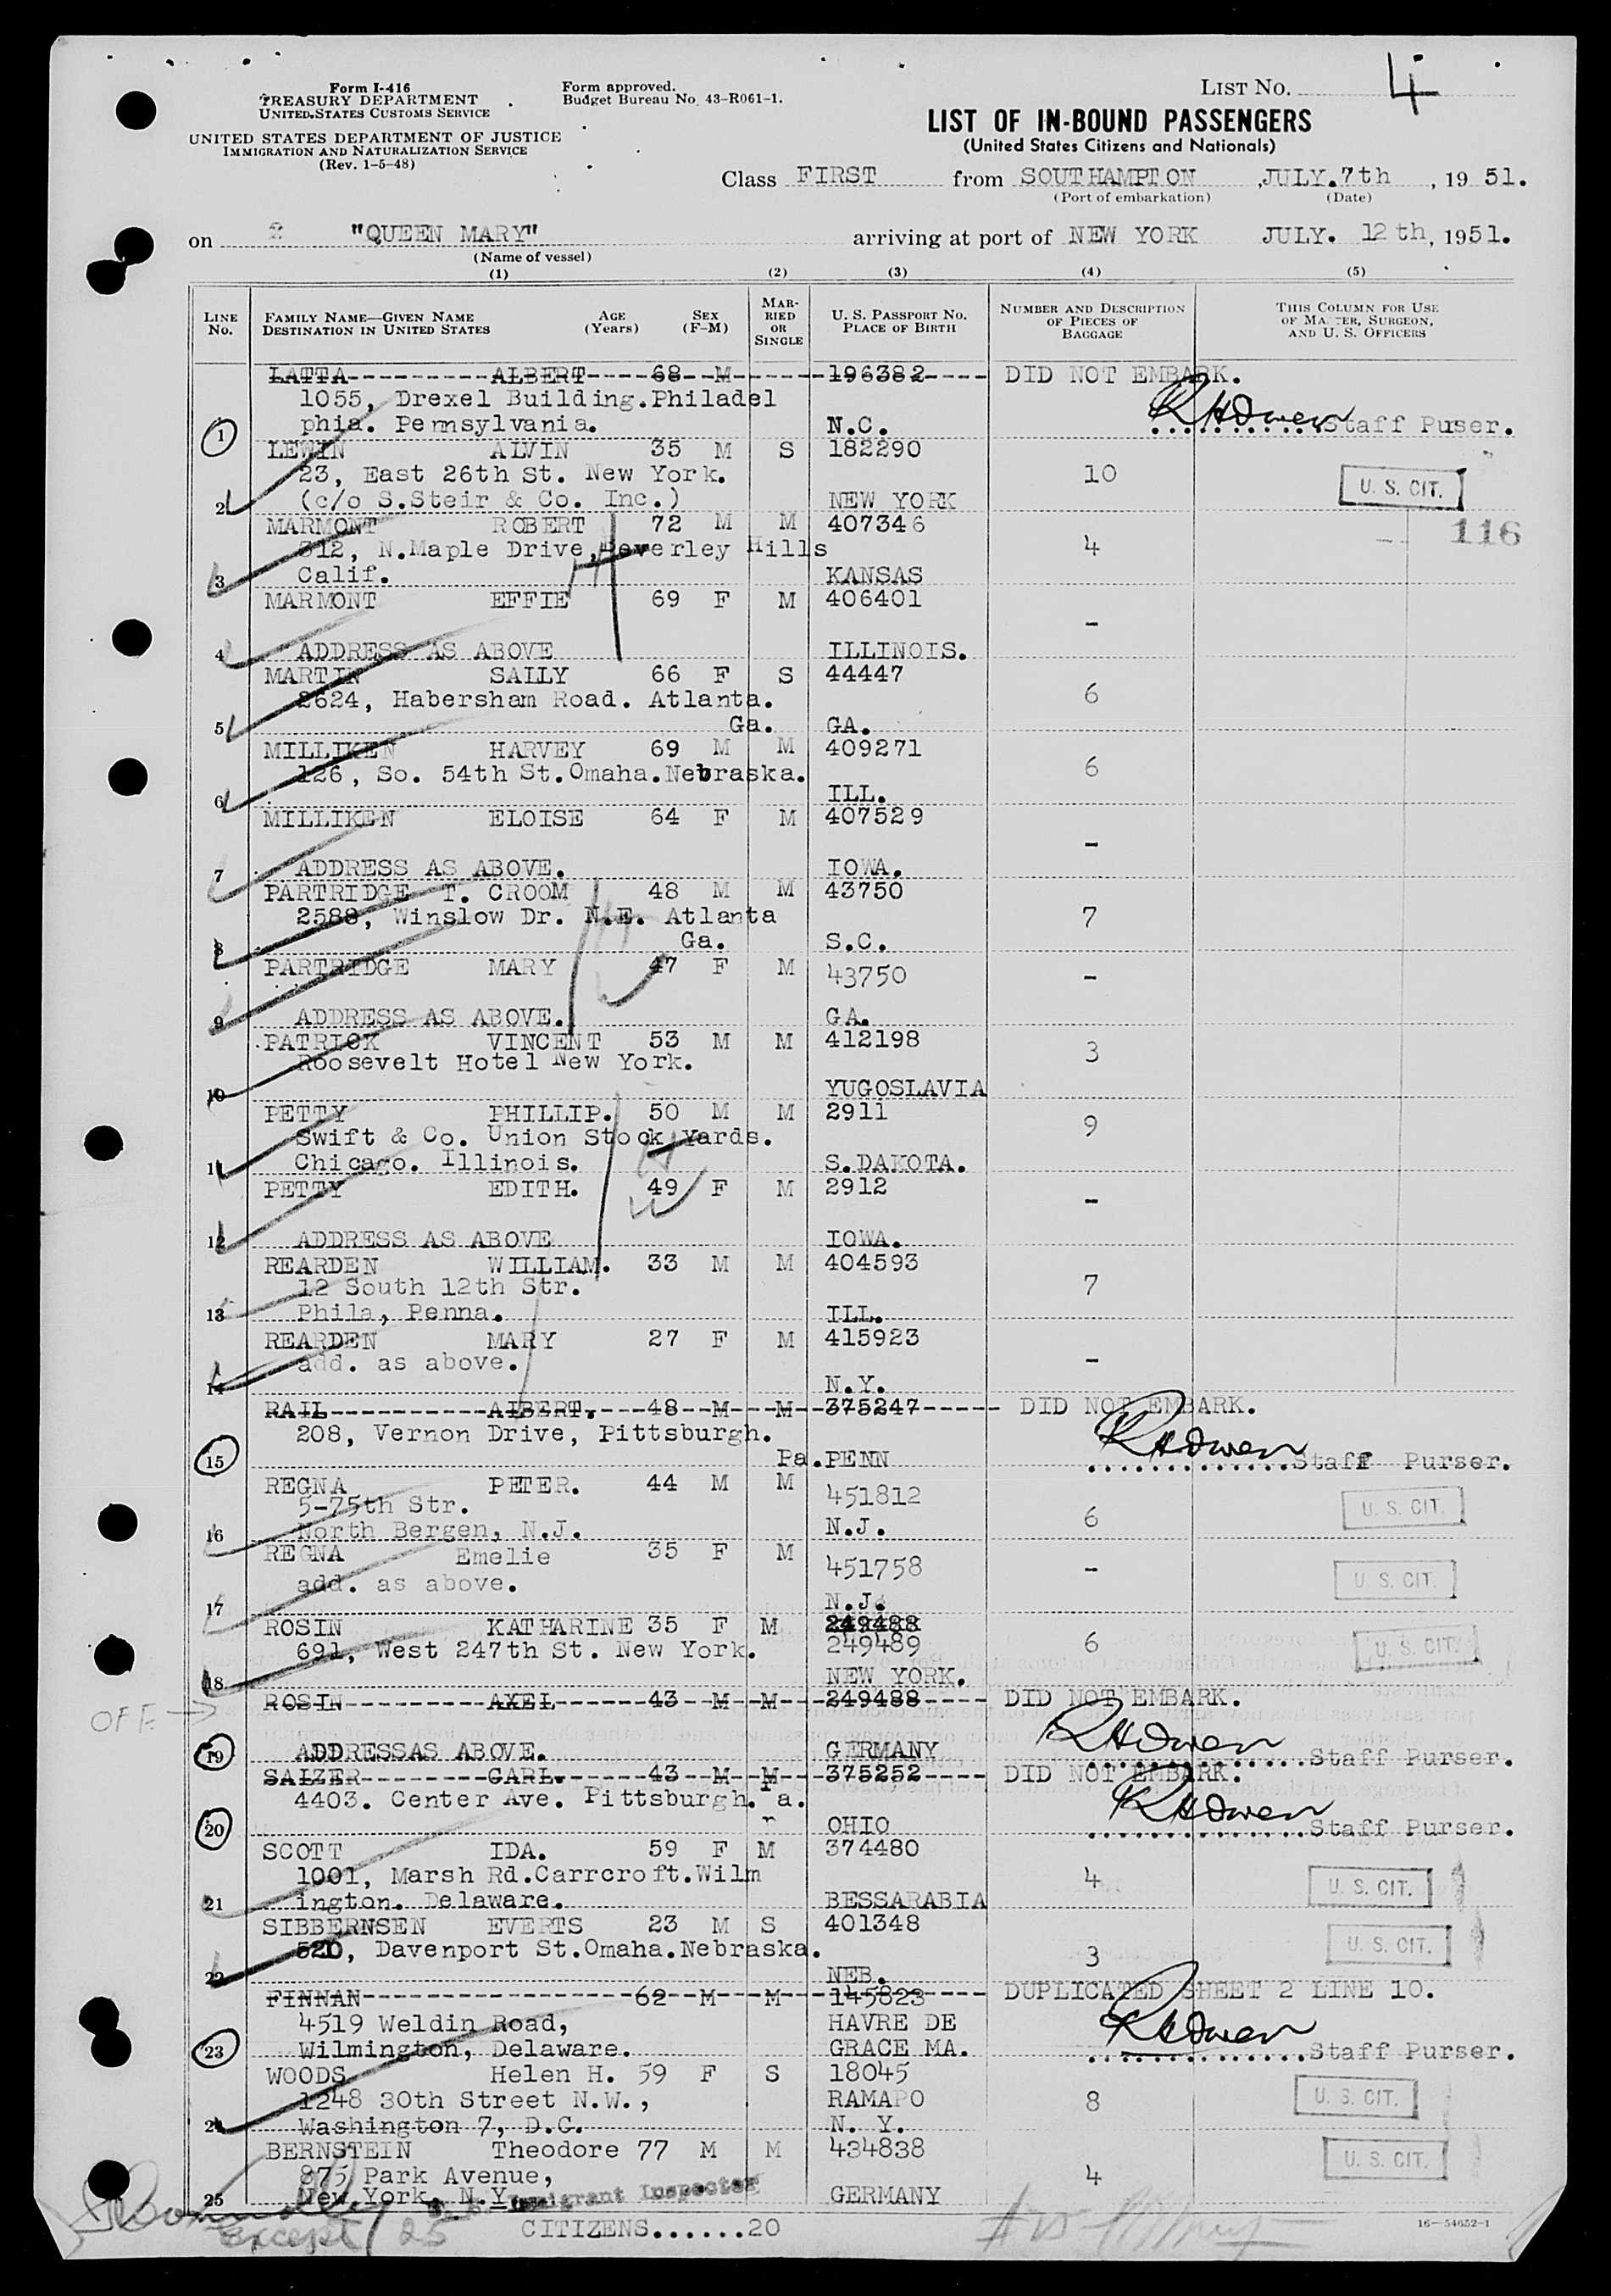 Form I-416
TREASURY DEPARTMENT
UNITED STATES CUSTOMS SERVICE
UNITED STATES DEPARTMENT OF JUSTICE
IMMIGRATION AND NATURALIZATION SERVICE
(Rev. 1-5-48)
Form approved.
Budget Bureau No. 43-R061-1.
LIST NO. 4
LIST OF IN-BOUND PASSENGERS
(United States Citizens and Nationals)
Class FIRST from SOUTHAMPTON , JULY.7th , 19 51.
(Port of embarkation) (Date)
on "QUEEN MARY" arriving at port of NEW YORK JULY. 12th, 1951.
(Name of vessel)
(1) (2) (3) (4) (5)
LINE No. FAMILY NAME—GIVEN NAME DESTINATION IN UNITED STATES AGE (Years) SEX (F-M) MARRIED OR SINGLE U. S. PASSPORT NO. PLACE OF BIRTH NUMBER AND DESCRIPTION OF PIECES OF BAGGAGE THIS COLUMN FOR USE OF MASTER, SURGEON, AND U. S. OFFICERS
LATTA ALBERT 68 M 196382 DID NOT EMBARK.
1055, Drexel Building.Philadel
1 phia. Pennsylvania. N.C. RHOwen Staff Purser.
LEWIN ALVIN 35 M S 182290
23, East 26th St. New York. 10 U. S. CIT.
2 (c/o S.Steir & Co. Inc.) NEW YORK
MARMONT ROBERT 72 M M 407346 116
312, N.Maple Drive,Beverley Hills 4
3 Calif. KANSAS
MARMONT EFFIE 69 F M 406401
-
4 ADDRESS AS ABOVE ILLINOIS.
MARTIN SALLY 66 F S 44447
2624, Habersham Road. Atlanta. 6
5 Ga. GA.
MILLIKEN HARVEY 69 M M 409271
126, So. 54th St.Omaha.Nebraska. 6
6 ILL.
MILLIKEN ELOISE 64 F M 407529
-
7 ADDRESS AS ABOVE. IOWA.
PARTRIDGE T. CROOM 48 M M 43750
2588, Winslow Dr. N.E. Atlanta 7
8 Ga. S.C.
PARTRIDGE MARY 47 F M 43750
-
9 ADDRESS AS ABOVE. GA.
PATRICK VINCENT 53 M M 412198
Roosevelt Hotel New York. 3
10 YUGOSLAVIA
PETTY PHILLIP. 50 M M 2911
Swift & Co. Union Stock Yards. 9
11 Chicago. Illinois. S.DAKOTA.
PETTY EDITH. 49 F M 2912
-
12 ADDRESS AS ABOVE IOWA.
REARDEN WILLIAM. 33 M M 404593
12 South 12th Str. 7
13 Phila, Penna. ILL.
REARDEN MARY 27 F M 415923
add. as above. -
14 N.Y.
RAIL ALBERT. 48 M M 375247 DID NOT EMBARK.
208, Vernon Drive, Pittsburgh.
15 Pa. PENN RHOwen Staff Purser.
REGNA PETER. 44 M M 451812
5-75th Str. 6 U. S. CIT.
16 North Bergen, N.J. N.J.
REGNA Emelie 35 F M 451758
add. as above. - U. S. CIT.
17 N.J.
ROSIN KATHARINE 35 F M 249488
691, West 247th St. New York. 249489 6 U. S. CIT.
18 NEW YORK.
OFF → ROSIN AXEL 43 M M 249488 DID NOT EMBARK.
19 ADDRESSAS ABOVE. GERMANY RHOwen Staff Purser.
SALZER CARL. 43 M M 375252 DID NOT EMBARK.
4403. Center Ave. Pittsburgh. Pa.
20 OHIO RHOwen Staff Purser.
SCOTT IDA. 59 F M 374480
1001, Marsh Rd.Carrcroft.Wilm 4 U. S. CIT.
21 ington. Delaware. BESSARABIA
SIBBERNSEN EVERTS 23 M S 401348
520, Davenport St.Omaha.Nebraska. 3 U. S. CIT.
22 NEB.
FINNAN 62 M M 145823 DUPLICATED SHEET 2 LINE 10.
4519 Weldin Road, HAVRE DE
23 Wilmington, Delaware. GRACE MA. RHOwen Staff Purser.
WOODS Helen H. 59 F S 18045
1248 30th Street N.W., RAMAPO 8 U. S. CIT.
24 Washington 7, D.C. N. Y.
BERNSTEIN Theodore 77 M M 434838
875 Park Avenue, 4 U. S. CIT.
25 New York, N.Y. GERMANY
Immigrant Inspector
except 25
CITIZENS......20
16—54652-1